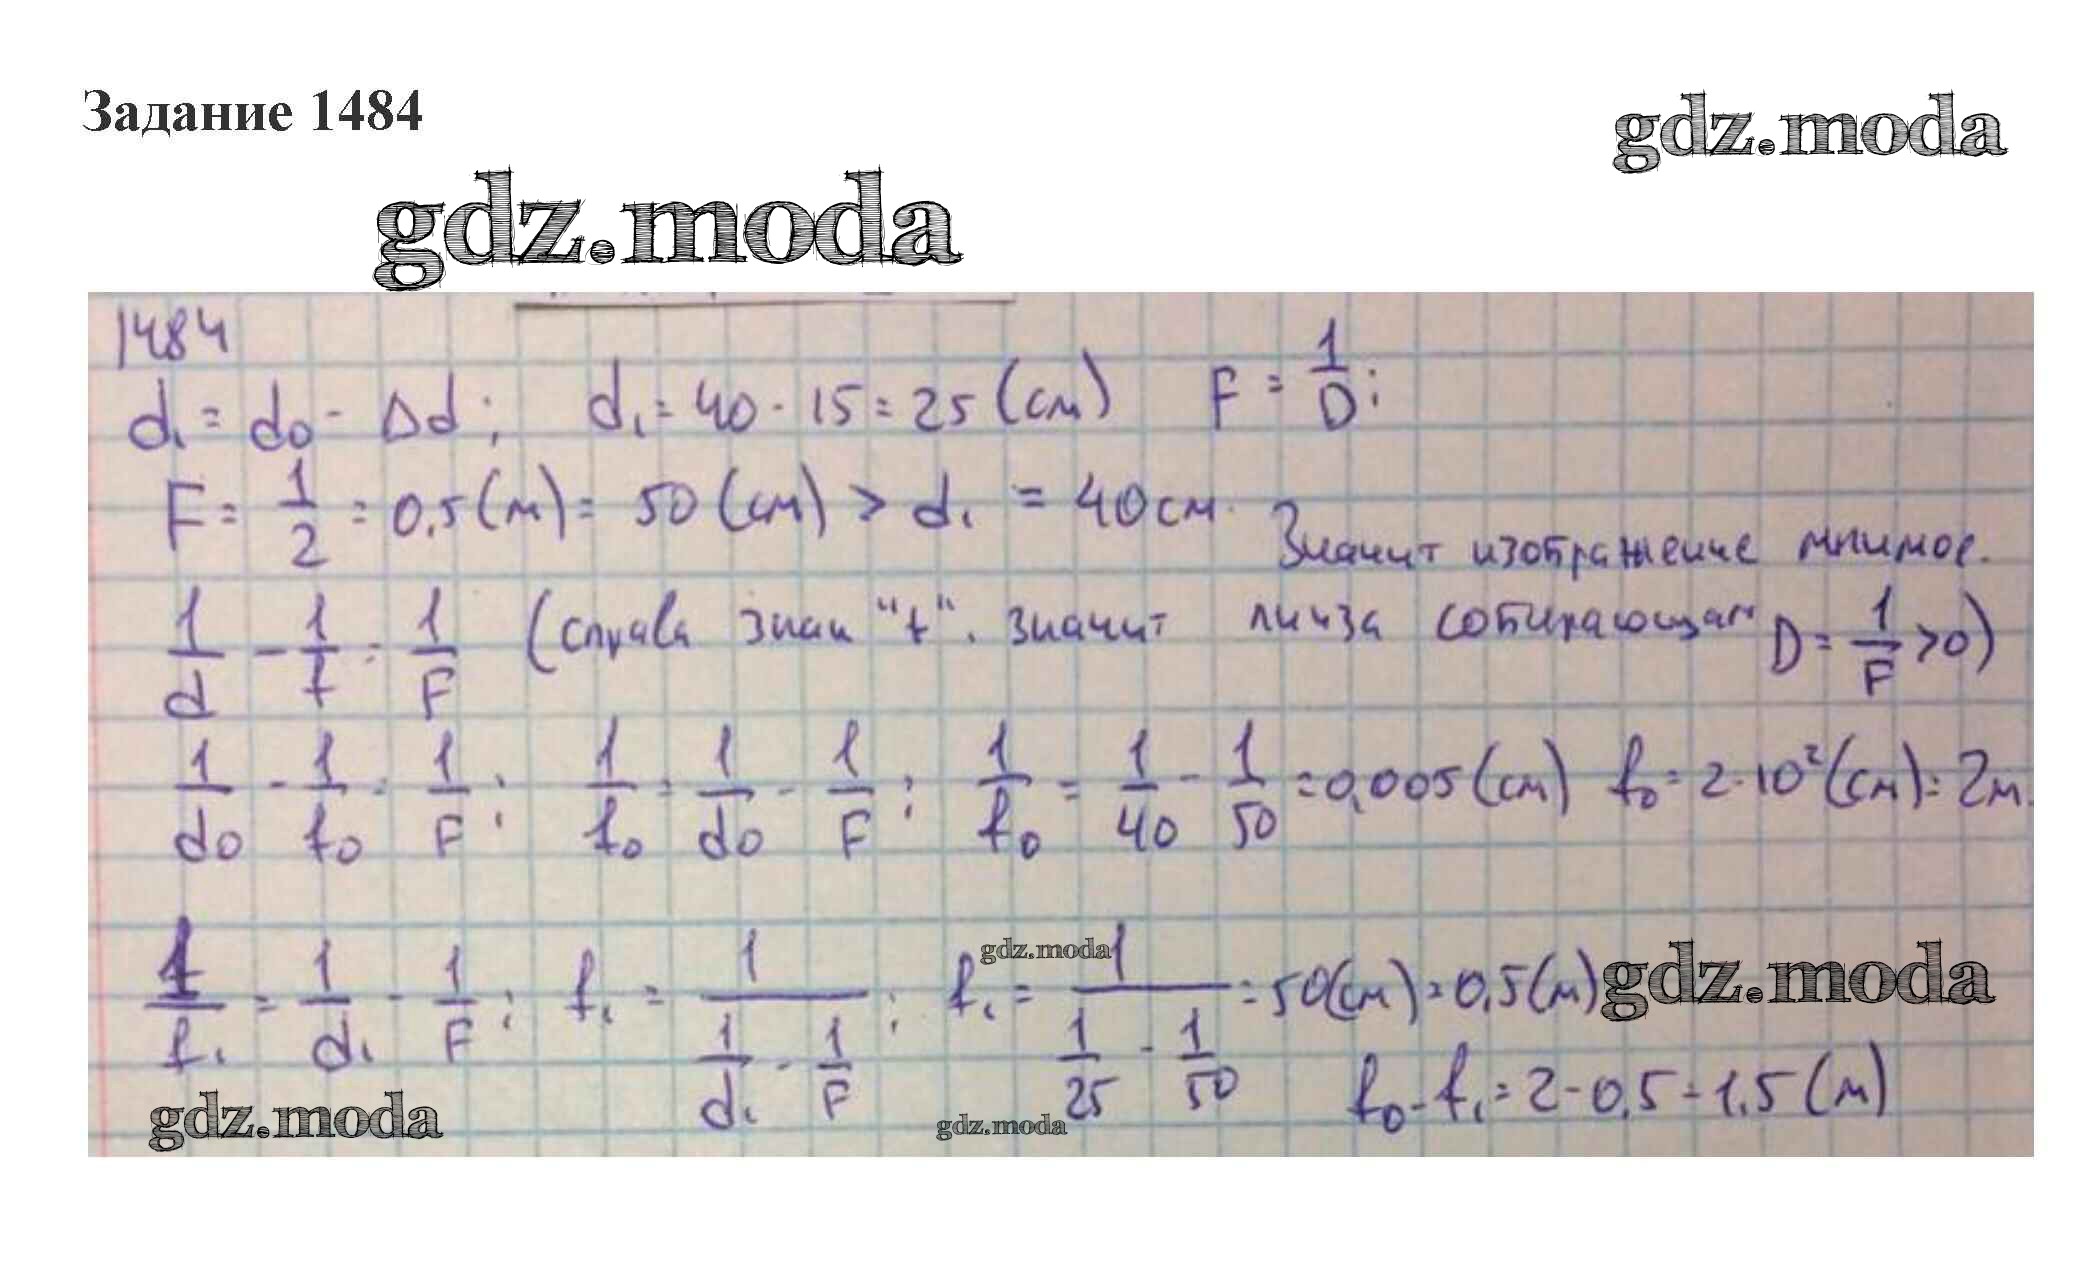 Задание 1484
gdz.moda
gdz.moda
1484
d₁ = d₀ - Δd; d₁ = 40 - 15 = 25 (см) F = 1/D;
F = 1/2 = 0,5 (м) = 50 (см) > d₁ = 40 см.
Значит изображение мнимое.
1/d - 1/f = 1/F (справа знак "+". значит линза собирающая D = 1/F > 0)
1/d₀ - 1/f₀ = 1/F; 1/f₀ = 1/d₀ - 1/F; 1/f₀ = 1/40 - 1/50 = 0,005 (см) f₀ = 2·10² (см) = 2м.
gdz.moda
1/f₁ = 1/d₁ - 1/F; f₁ = 1/(1/d₁ - 1/F); f₁ = 1/(1/25 - 1/50) = 50 (см) = 0,5 (м)
gdz.moda
f₀ - f₁ = 2 - 0,5 = 1,5 (м)
gdz.moda
gdz.moda